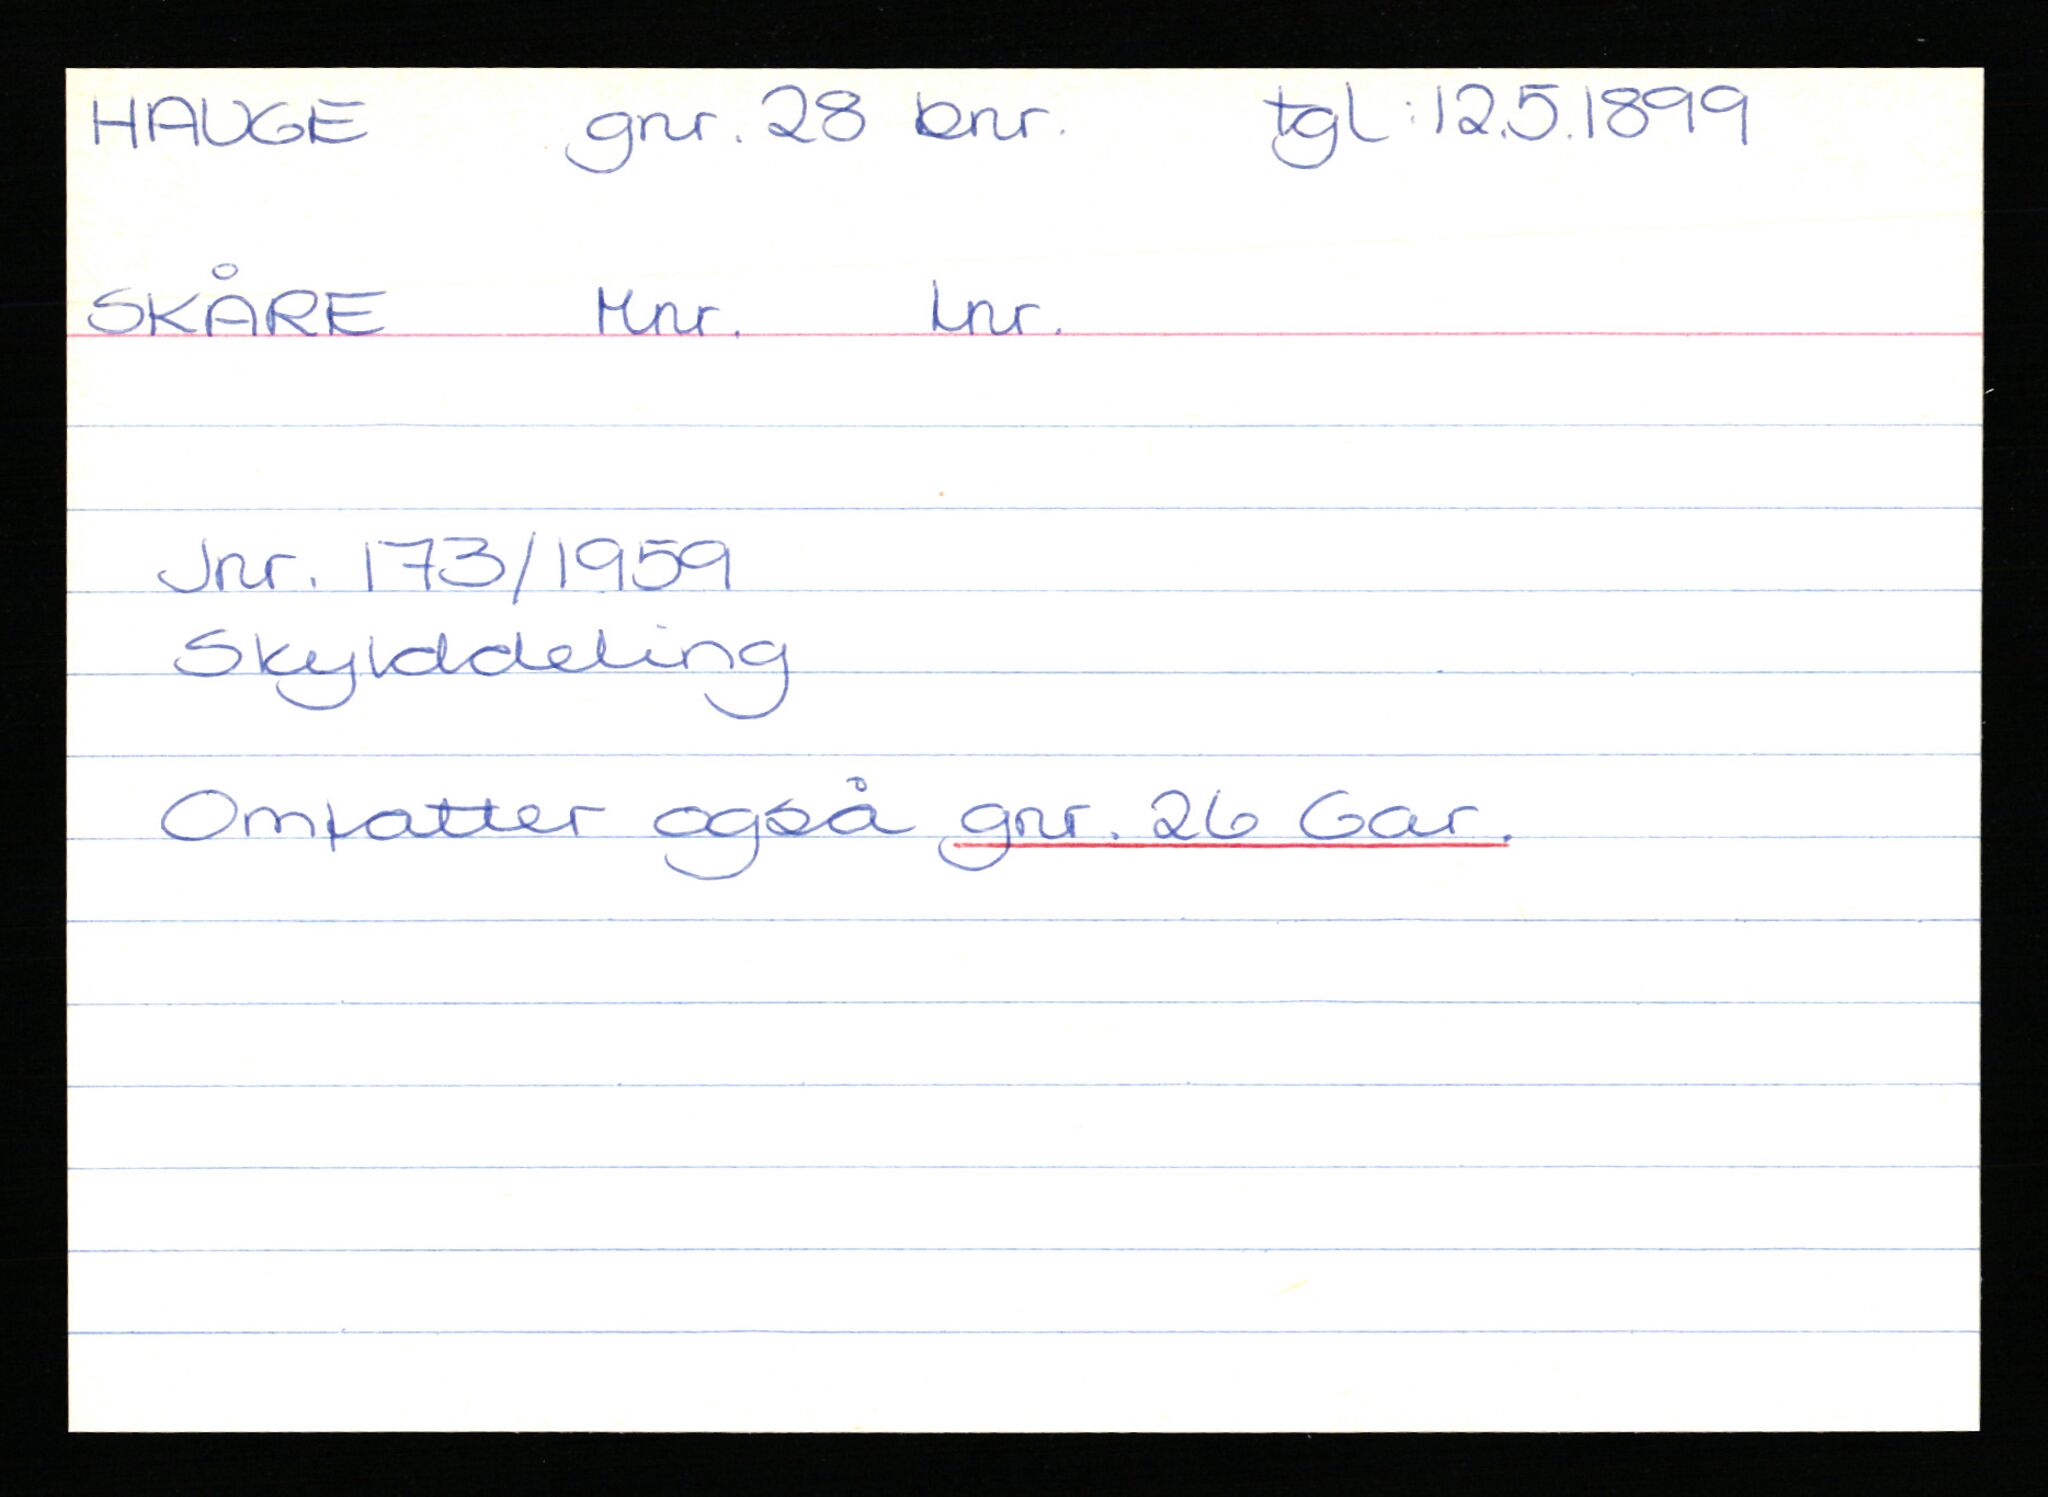 HAUGE gnr. 28 bnr. tgl: 12.5.1899
SKÅRE Mnr. Lnr.
Jnr. 173/1959
Skylddeling
Omfatter også gnr. 26 Gar.